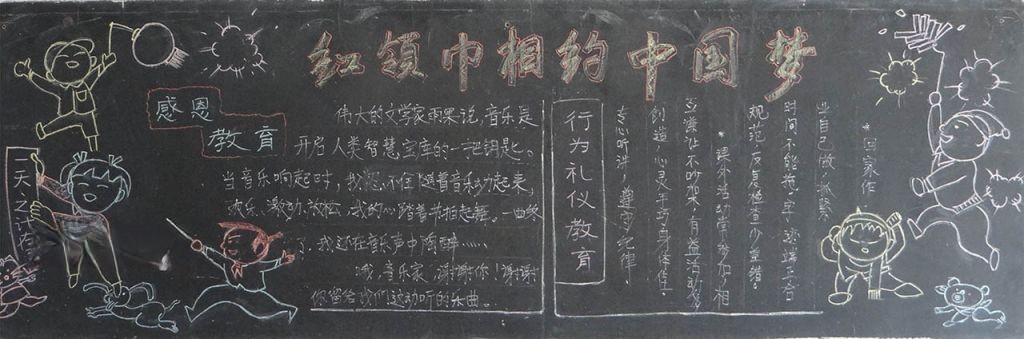 红领巾相约中国梦
感恩
教育
伟大的文学家雨果说,音乐是
开启人类智慧宝库的一把钥匙。
当音乐响起时,我忍不住随着音乐动起来,
欢乐、激动、放松,我的心踏着节拍起舞。一曲终
了,我还在音乐声中陶醉……
哦,音乐家,谢谢你!谢谢
你留给我们这动听的乐曲。
行为礼仪教育
专心听讲,遵守纪律。
创造,心灵手巧身体佳。
互谦让不吵架,有益活动我
课外活动同参加,
规范,反复检查少差错。
时间不能拖,字迹端正合
业自己做,抓紧
回家作
一天之计在